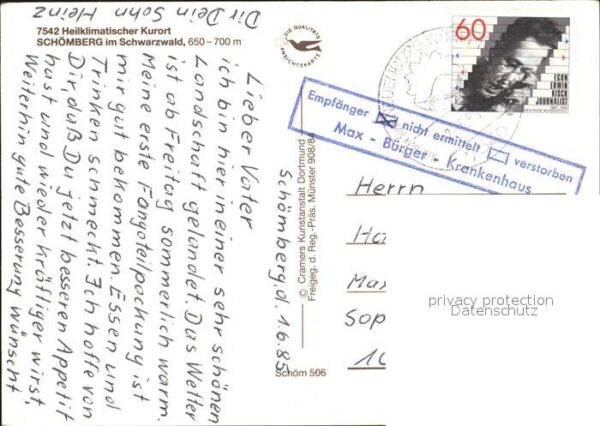 7542 Heilklimatischer Kurort
SCHÖMBERG im Schwarzwald, 650–700 m
DIE QUALITÄTS
ANSICHTSKARTE
60
EGON
ERWIN
KISCH
JOURNALIST
Empfänger nicht ermittelt verstorben
Max - Bürger - Krankenhaus
Schömberg, d. 1.6.85
Lieber Vater
ich bin hier in einer sehr schönen
Landschaft gelandet. Das Wetter
ist ab Freitag sommerlich warm.
Meine erste Fangoteilpackung ist
mir gut bekommen. Essen und
Trinken schmeckt. Ich hoffe von
Dir, daß Du jetzt besseren Appetit
hast und wieder kräftiger wirst.
Weiterhin gute Besserung wünscht
Dir Dein Sohn Heinz
© Cramers Kunstanstalt Dortmund
Freigeg. d. Reg.-Präs. Münster 908/84
Schöm 506
Herrn
Ha
Max
Sop
10
privacy protection
Datenschutz